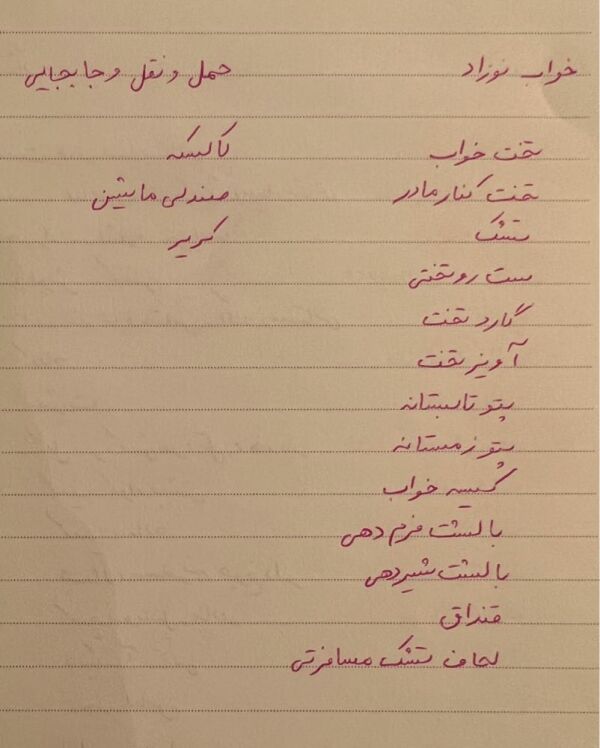 خواب نوزاد
تخت خواب
تخت کنار مادر
تشک
ست روتختی
گارد تخت
آویز تخت
پتو تابستانه
پتو زمستانه
کیسه خواب
بالشت فرم دهی
بالشت شیردهی
قنداق
لحاف تشک مسافرتی
حمل و نقل و جابجایی
کالسکه
صندلی ماشین
کریر